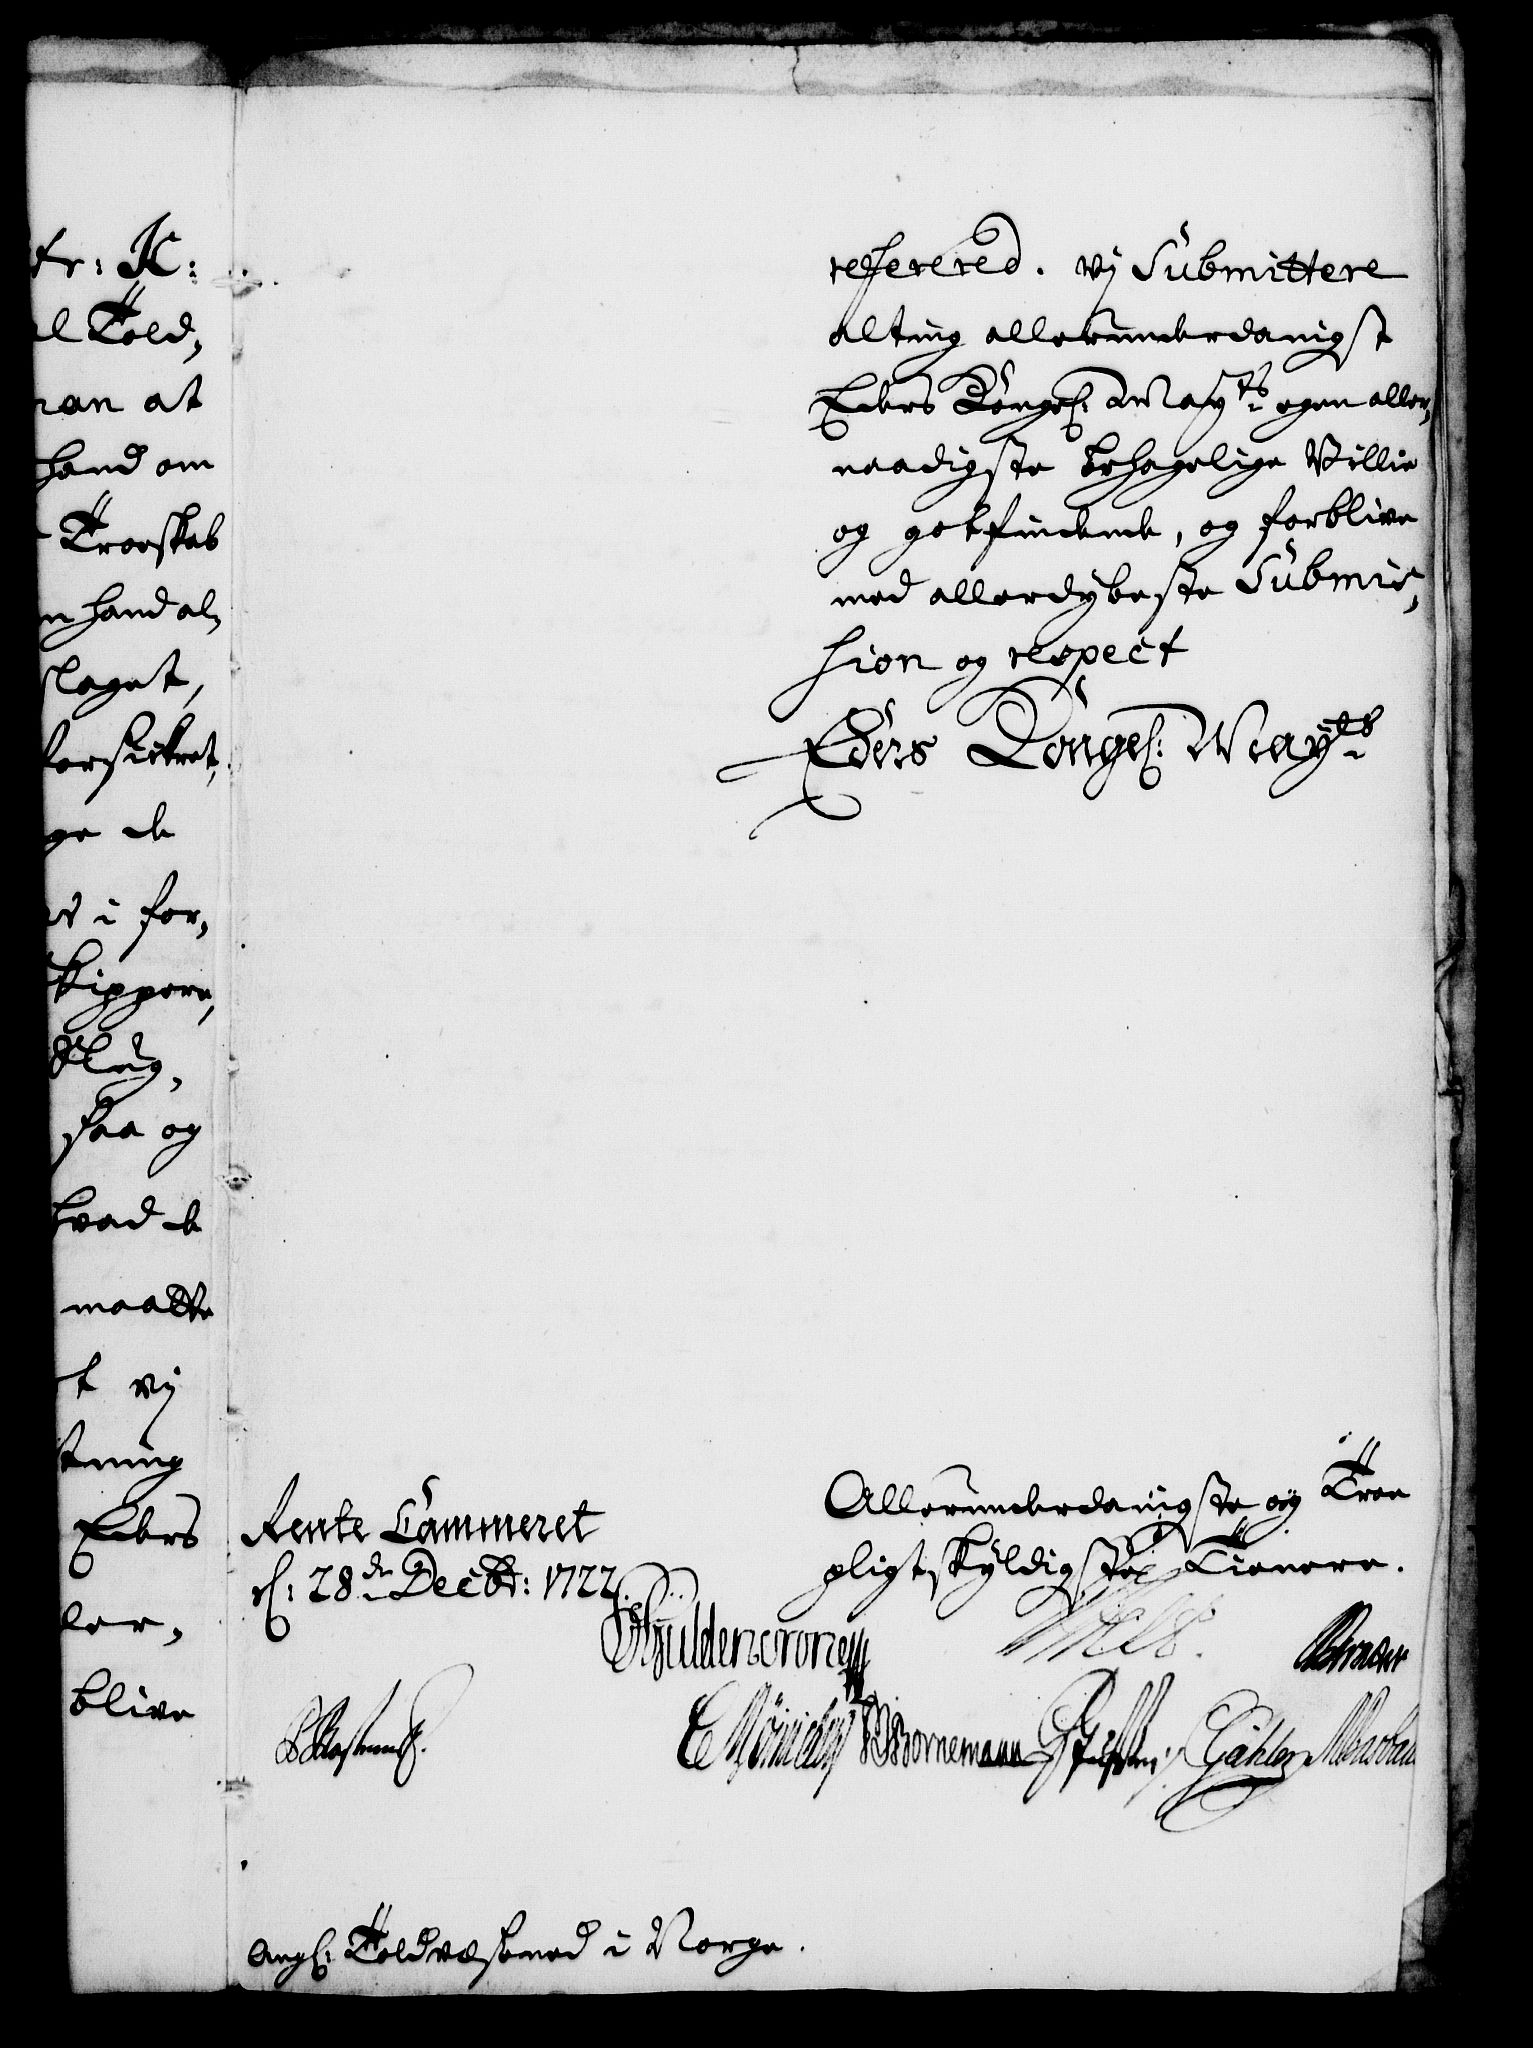 tr: K:
l Told,
ran at
hand om
Troeskab
n hand al,
slaget,
forsickret,
ge de
i for,
Skippere,
Klug,
saa og
hvad de
maatte
t vij
tning
Eders
ler,
blive
referered. Vj Submittere
alting allerunderdanigst
Eders Kongel: Mayts egen aller,
naadigste behagelige Villie
og gotfindende, og forblive
med allerdybeste Submis,
sion og respect
Eders Kongel: Mayts
Allerunderdanigste og Troe
pligtskyldigste Tienere.
Rente Cammeret
d: 28de Decbr: 1722
Güldencrone
Schrader
Bornemann
Gähler
Angl: Toldvæsenet i Norge.